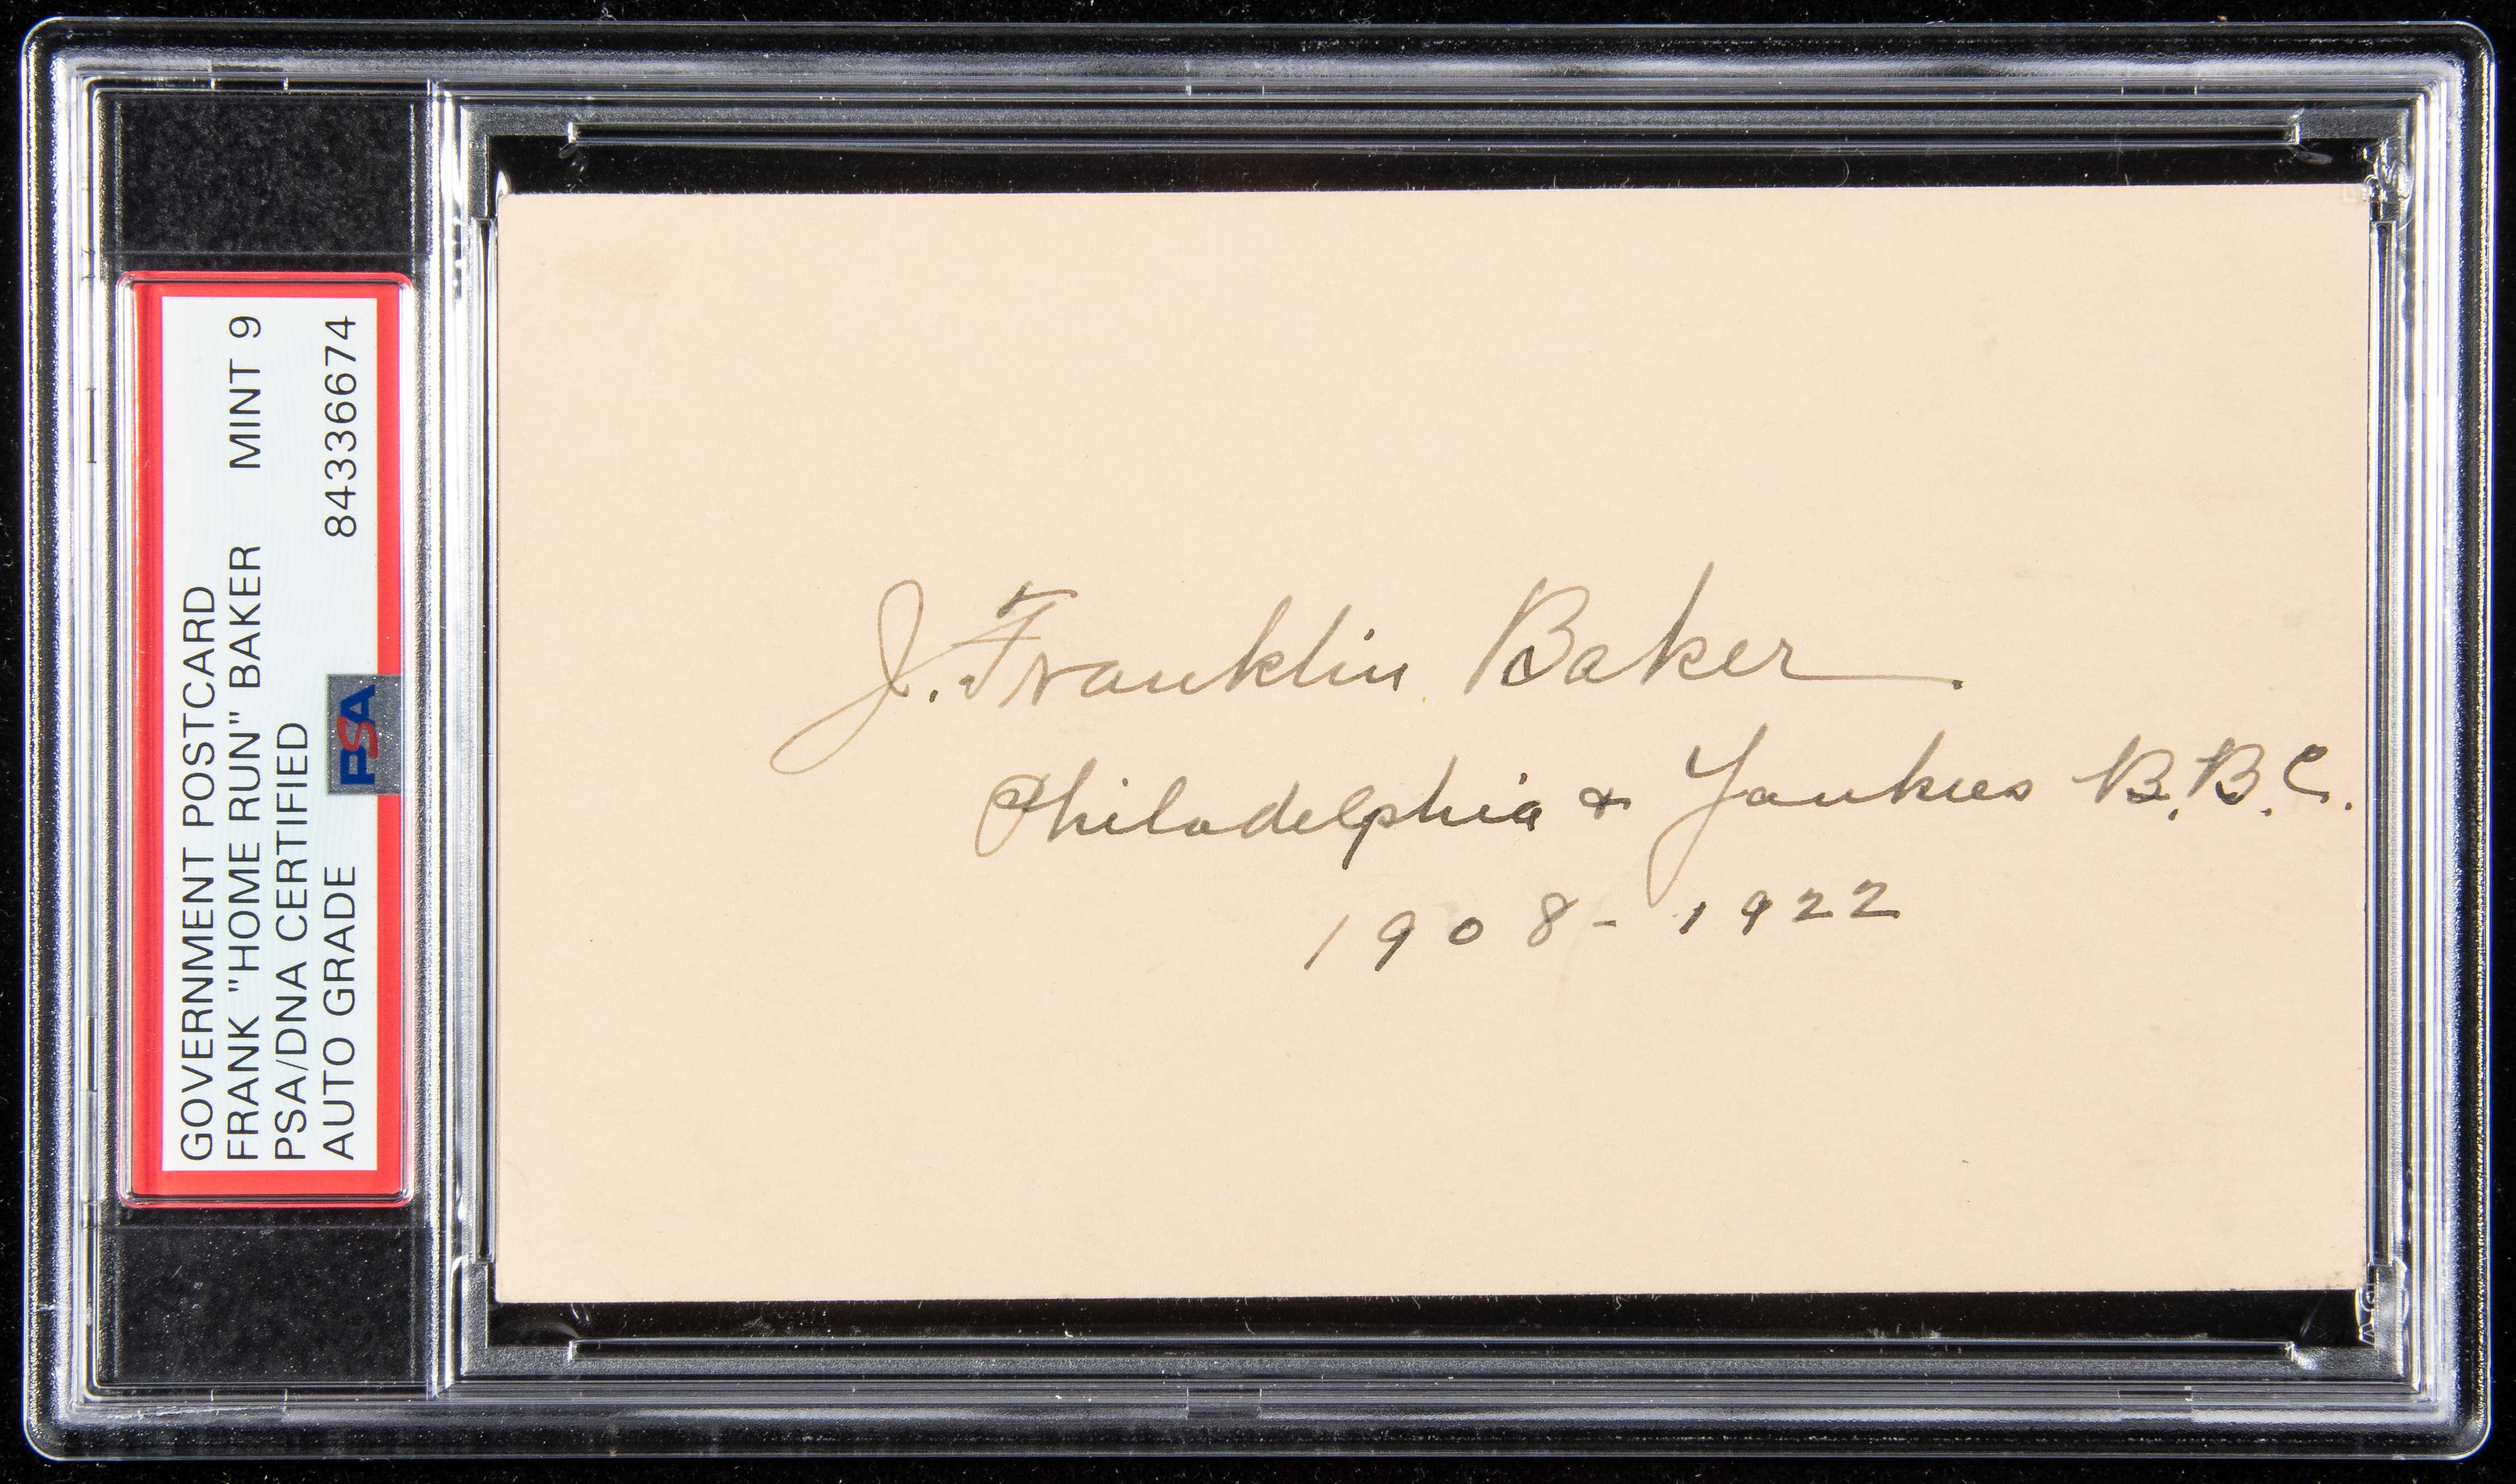 GOVERNMENT POSTCARD
FRANK "HOME RUN" BAKER MINT 9
PSA/DNA CERTIFIED
AUTO GRADE 84336674
PSA
J. Franklin Baker.
Philadelphia & Yankees B.B.C.
1908-1922